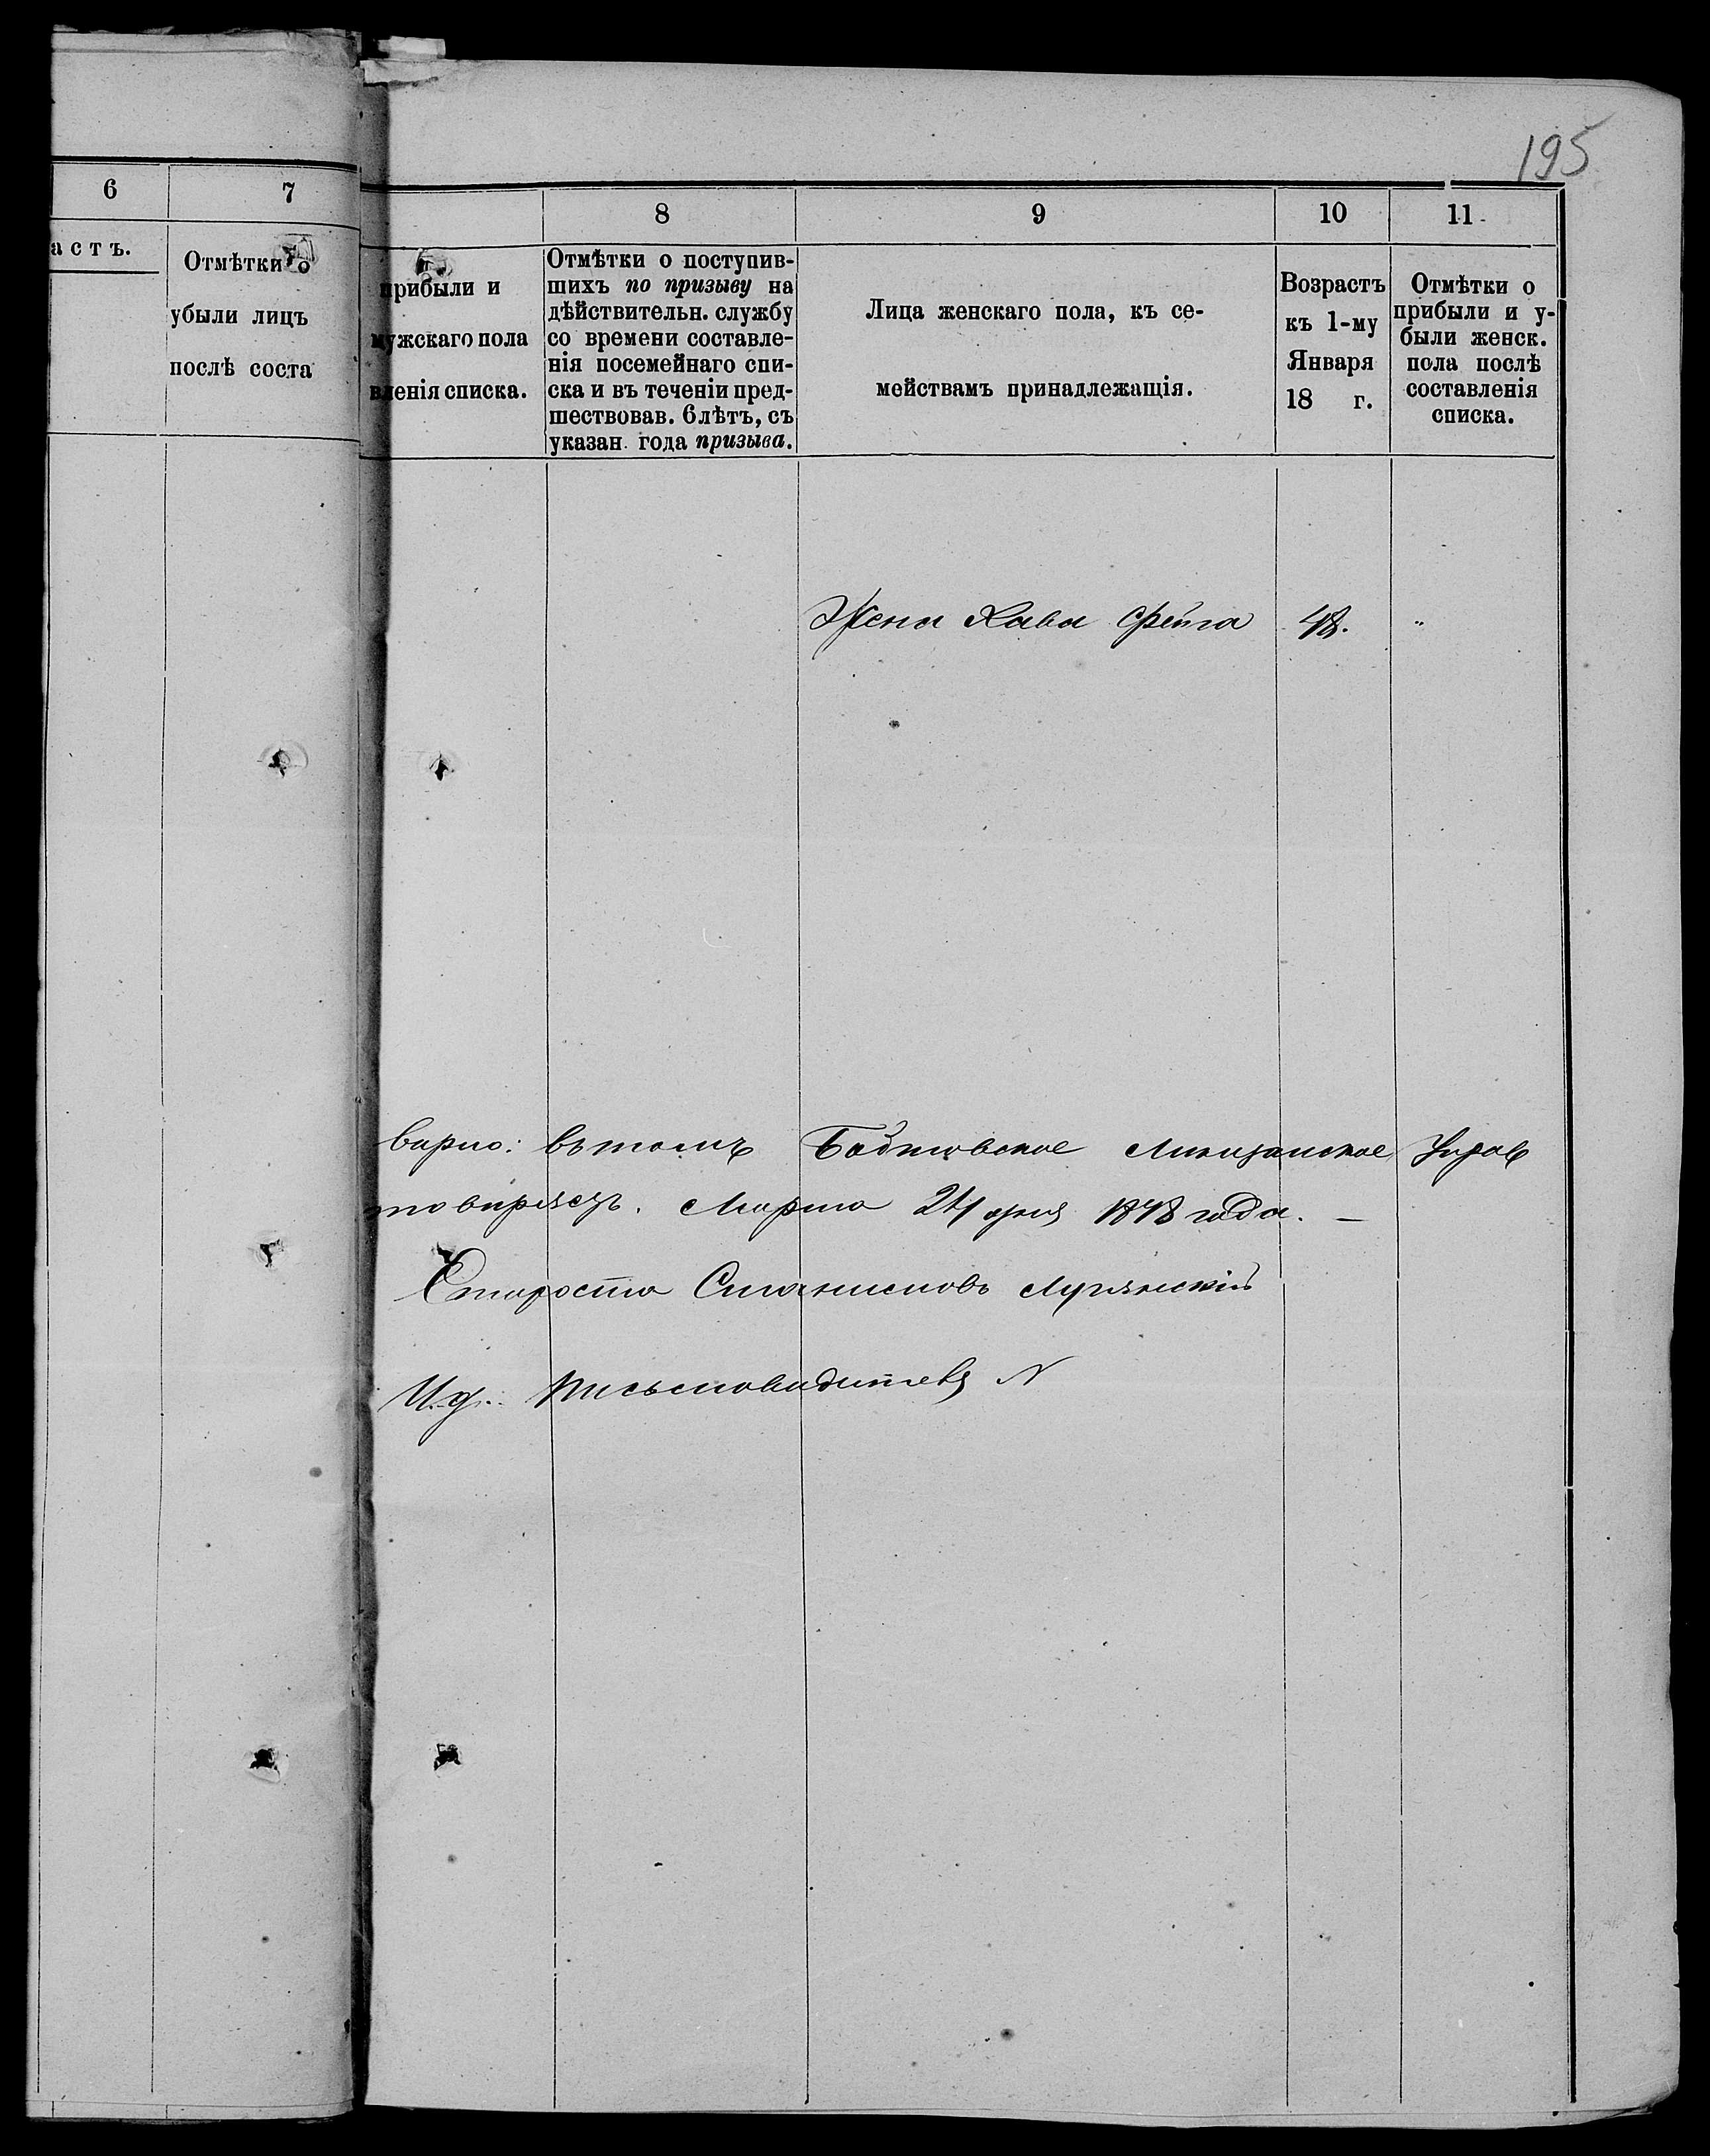 195
6 7
астъ.
Отмѣтки о
убыли лицъ
послѣ соста
8 9 10 11
прибыли и
мужскаго пола
вленія списка.
Отмѣтки о поступив-
шихъ по призыву на
дѣйствительн. службу
со времени составле-
нія посемейнаго спи-
ска и въ теченіи пред-
шествовав. 6 лѣтъ, съ
указан. года призыва.
Лица женскаго пола, къ се-
мействамъ принадлежащія.
Возрастъ
къ 1-му
Января
18 г.
Отмѣтки о
прибыли и у-
были женск.
пола послѣ
составленія
списка.
Жена Хава Фейга 48. "
вѣрно: въ томъ Мѣщанское Управ
Марта 24 дня 1878 года. —
Староста Станиславъ
И. д. Письмоводителя